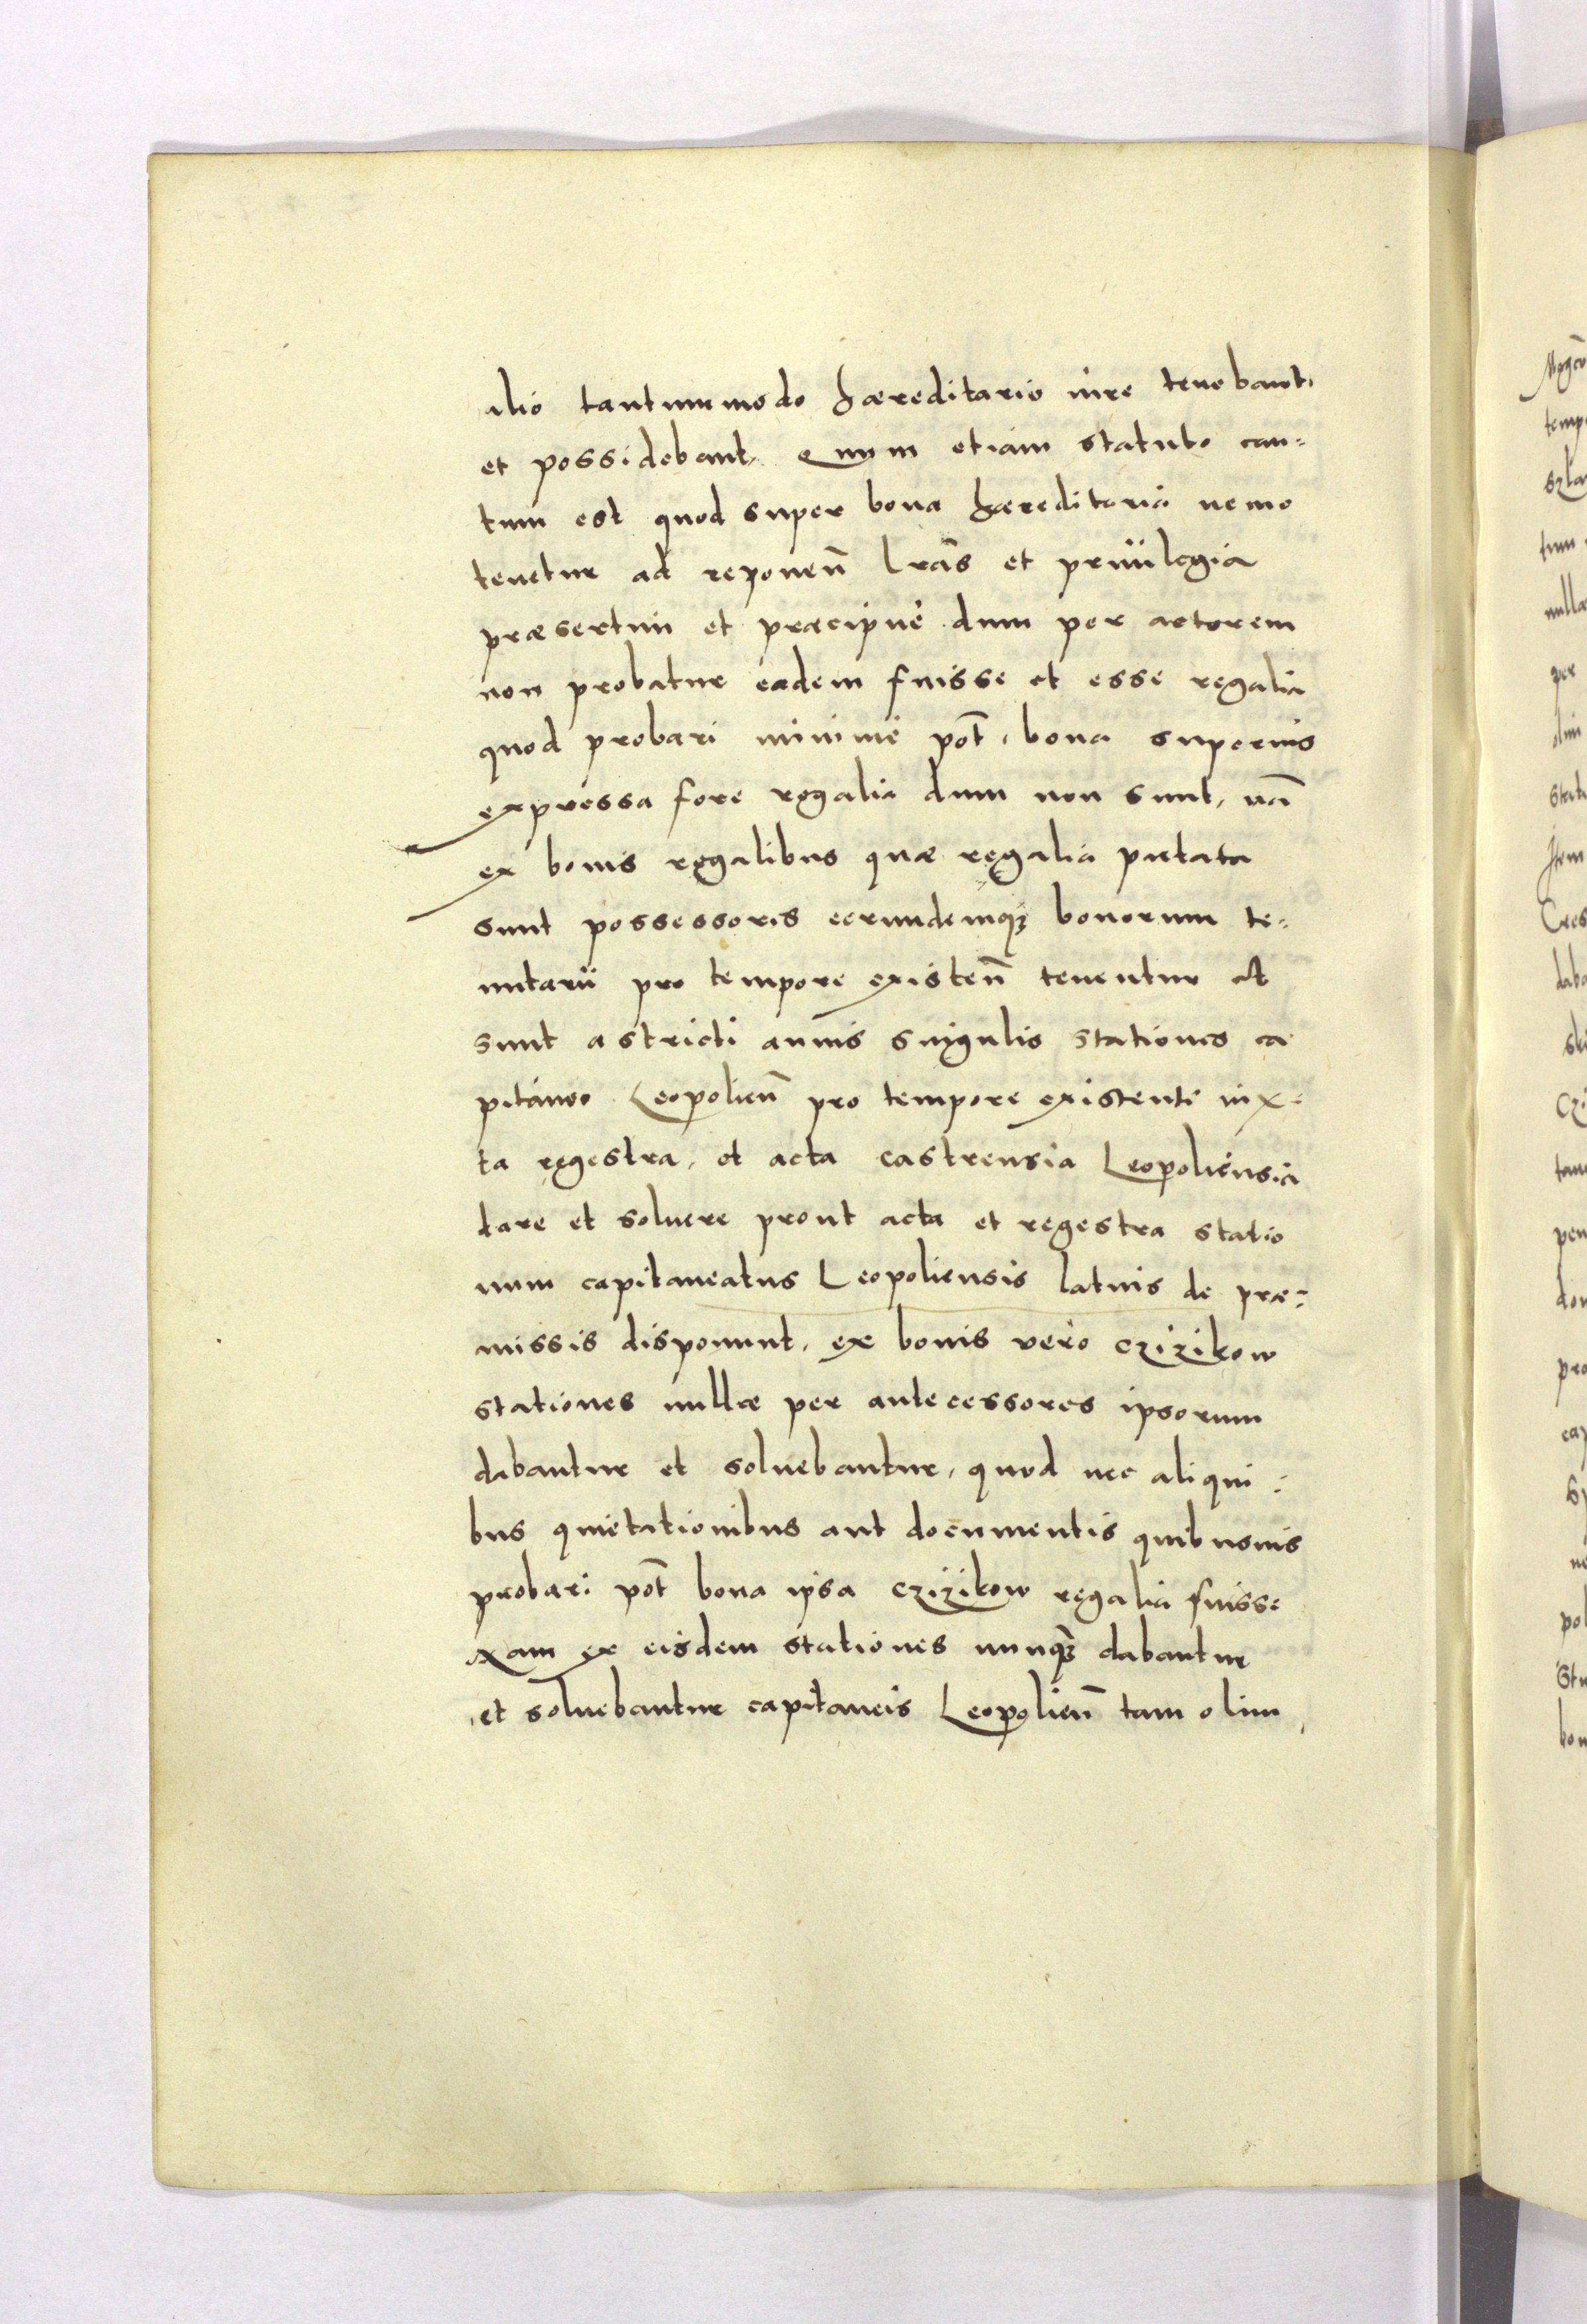 alio tantummodo hæreditario iure tenebant,
et possidebant, quum etiam statuto cau=
tum est quod super bona hæreditaria nemo
tenetur ad reponen̄ lrās et priuilegia
præsertim et præcipuè dum per actorem
non probatur eadem fuisse et esse regalia
quod probari minimè pōt, bona superius
expressa fore regalia dum non sunt, nā
ex bonis regalibus quæ regalia putata
sunt possessoris eorundemqꝫ bonorum te=
nutarii pro tempore existen̄ tenentur et
sunt astricti annis singulis stationes ca
pitaneo Leopolien̄ pro tempore existenti iux=
ta regestra, et acta castrensia Leopoliensia
dare et soluere prout acta et regestra statio
num capitaneatus Leopoliensis latius de præ=
missis disponunt, ex bonis vero Czizikow
stationes nullæ per antecessores ipsorum
dabantur et soluebantur, quod nec aliqui=
bus quietationibus aut documentis quibusuis
probari pōt bona ipsa Czizikow regalia fuisse
Nam ex eisdem stationes nunqꝫ dabantur
et soluebantur capitaneis Leopolien̄ tam olim
Mgcō
temp
tum
nulla
per
olim
stati
Item
Cres
daba
Czi
tam
pen
don
pro
cap
pol
bon